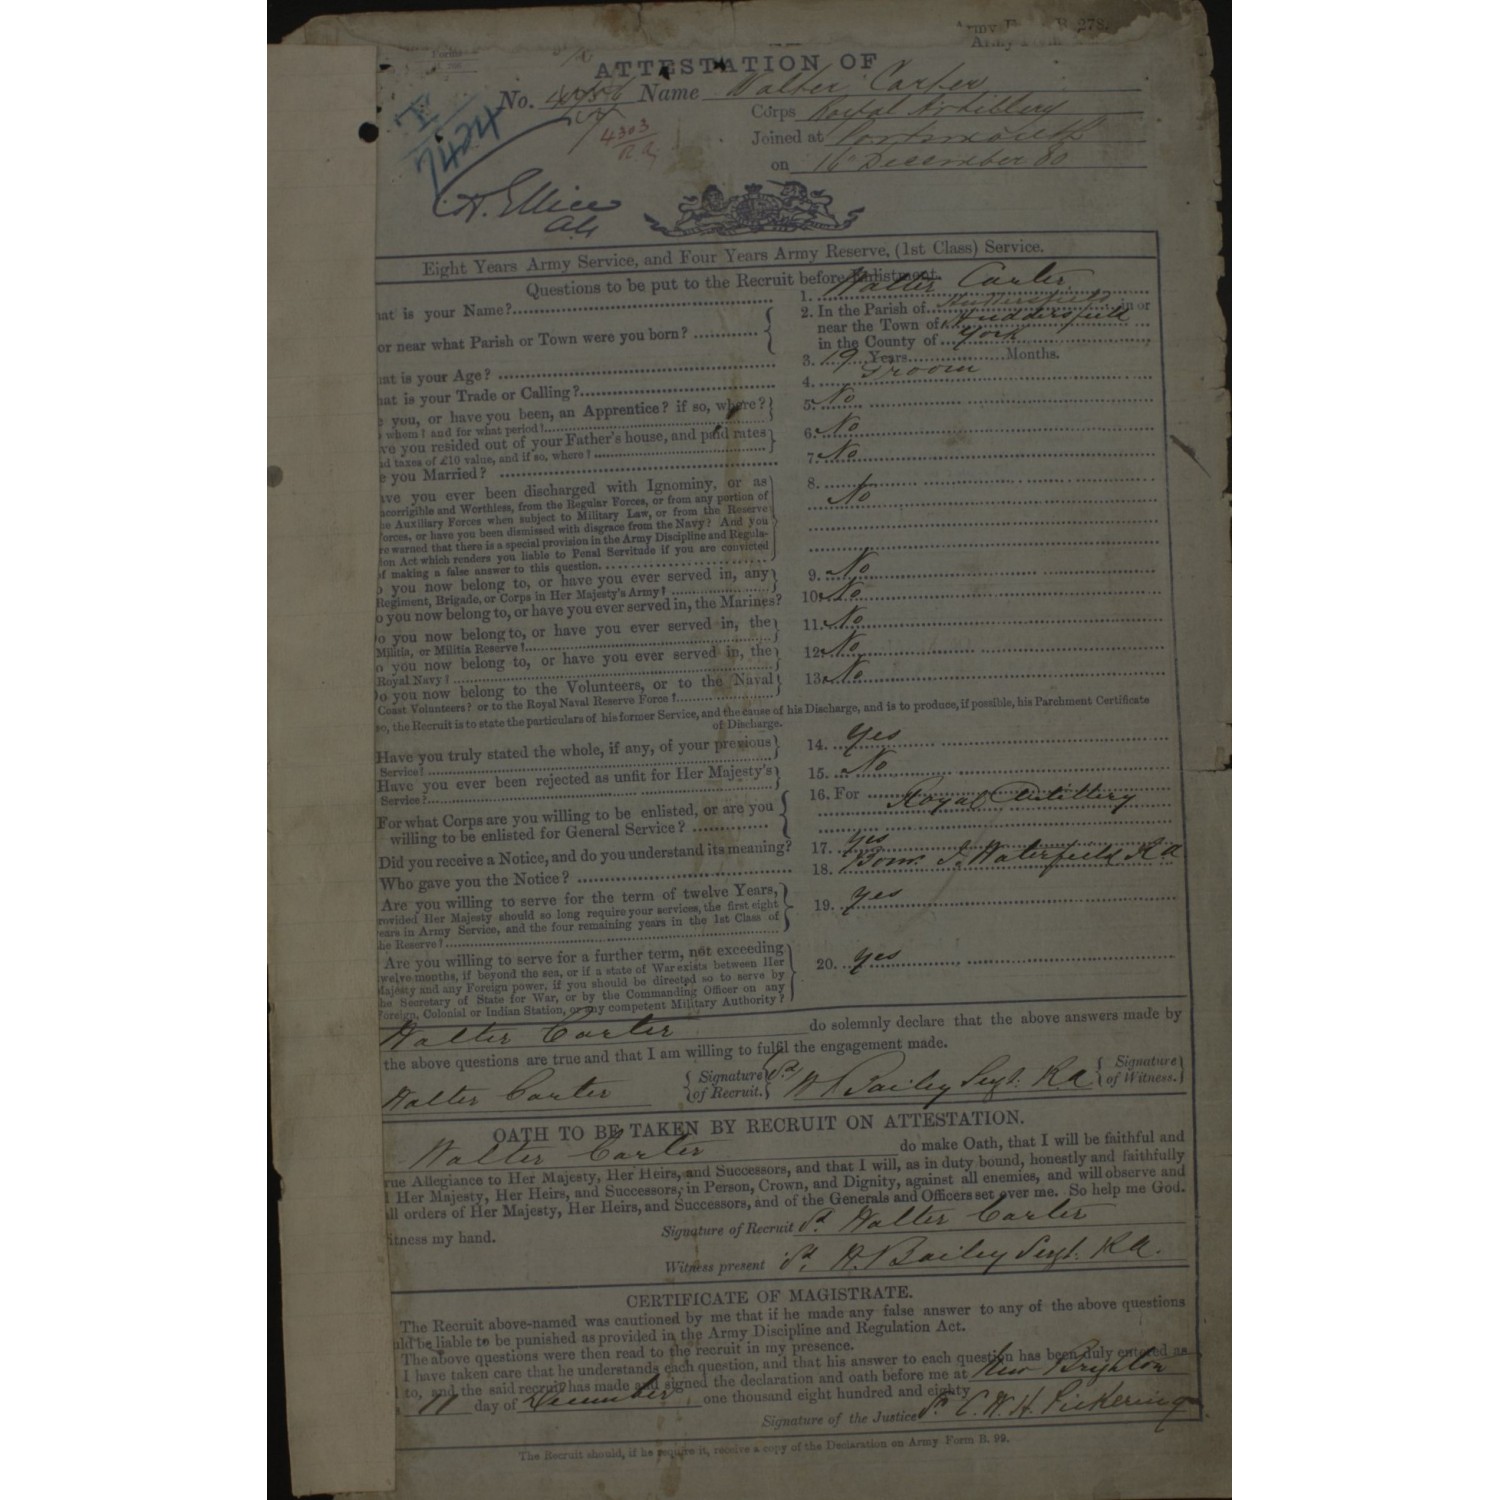 Army B. 278.
ATTESTATION OF
No. Name Walter Carter
Corps Royal Artillery
4303
R.A.
Joined at Portsmouth
on 16 December 80
7424
A. Ellice
Eight Years Army Service, and Four Years Army Reserve, (1st Class) Service.
Questions to be put to the Recruit before Enlistment.
at is your Name? 1. Walter Carter
or near what Parish or Town were you born? 2. In the Parish of Huddersfield in or
near the Town of Huddersfield
in the County of York
at is your Age? 3. 19 Years Months.
at is your Trade or Calling? 4. Groom
you, or have you been, an Apprentice? if so, where? 5. No
whom? and for what period?
ve you resided out of your Father's house, and paid rates 6. No
d taxes of £10 value, and if so, where?
e you Married? 7. No
ave you ever been discharged with Ignominy, or as 8. No
ncorrigible and Worthless, from the Regular Forces, or from any portion of
he Auxiliary Forces when subject to Military Law, or from the Reserve
orces, or have you been dismissed with disgrace from the Navy? And you
re warned that there is a special provision in the Army Discipline and Regula-
ion Act which renders you liable to Penal Servitude if you are convicted
f making a false answer to this question.
o you now belong to, or have you ever served in, any 9. No
Regiment, Brigade, or Corps in Her Majesty's Army?
o you now belong to, or have you ever served in, the Marines? 10. No
o you now belong to, or have you ever served in, the 11. No
Militia, or Militia Reserve?
o you now belong to, or have you ever served in, the 12. No
Royal Navy?
o you now belong to the Volunteers, or to the Naval 13. No
Coast Volunteers? or to the Royal Naval Reserve Force?
so, the Recruit is to state the particulars of his former Service, and the cause of his Discharge, and is to produce, if possible, his Parchment Certificate
of Discharge.
Have you truly stated the whole, if any, of your previous 14. Yes
Service?
Have you ever been rejected as unfit for Her Majesty's 15. No
Service?
For what Corps are you willing to be enlisted, or are you 16. For Royal Artillery
willing to be enlisted for General Service?
Did you receive a Notice, and do you understand its meaning? 17. Yes
Who gave you the Notice? 18. Bomr. J. Waterfield R.A
Are you willing to serve for the term of twelve Years, 19. Yes
rovided Her Majesty should so long require your services, the first eight
ears in Army Service, and the four remaining years in the 1st Class of
he Reserve?
Are you willing to serve for a further term, not exceeding 20. Yes
welve months, if beyond the sea, or if a state of War exists between Her
Majesty and any Foreign power, if you should be directed so to serve by
he Secretary of State for War, or by the Commanding Officer on any
Foreign, Colonial or Indian Station, or any competent Military Authority?
Walter Carter do solemnly declare that the above answers made by
the above questions are true and that I am willing to fulfil the engagement made.
Walter Carter Signature of Recruit. Sd. H Bailey Sergt. R.A Signature of Witness.
OATH TO BE TAKEN BY RECRUIT ON ATTESTATION.
Walter Carter do make Oath, that I will be faithful and
rue Allegiance to Her Majesty, Her Heirs, and Successors, and that I will, as in duty bound, honestly and faithfully
Her Majesty, Her Heirs, and Successors, in Person, Crown, and Dignity, against all enemies, and will observe and
ll orders of Her Majesty, Her Heirs, and Successors, and of the Generals and Officers set over me. So help me God.
itness my hand. Signature of Recruit Sd. Walter Carter
Witness present Sd. H. Bailey Sergt. R.A.
CERTIFICATE OF MAGISTRATE.
The Recruit above-named was cautioned by me that if he made any false answer to any of the above questions
uld be liable to be punished as provided in the Army Discipline and Regulation Act.
The above questions were then read to the recruit in my presence.
I have taken care that he understands each question, and that his answer to each question has been duly entered as
to, and the said recruit has made and signed the declaration and oath before me at New Brighton
11 day of December, one thousand eight hundred and eighty
Signature of the Justice Sd. C. W. H. Pickering
The Recruit should, if he require it, receive a copy of the Declaration on Army Form B. 99.